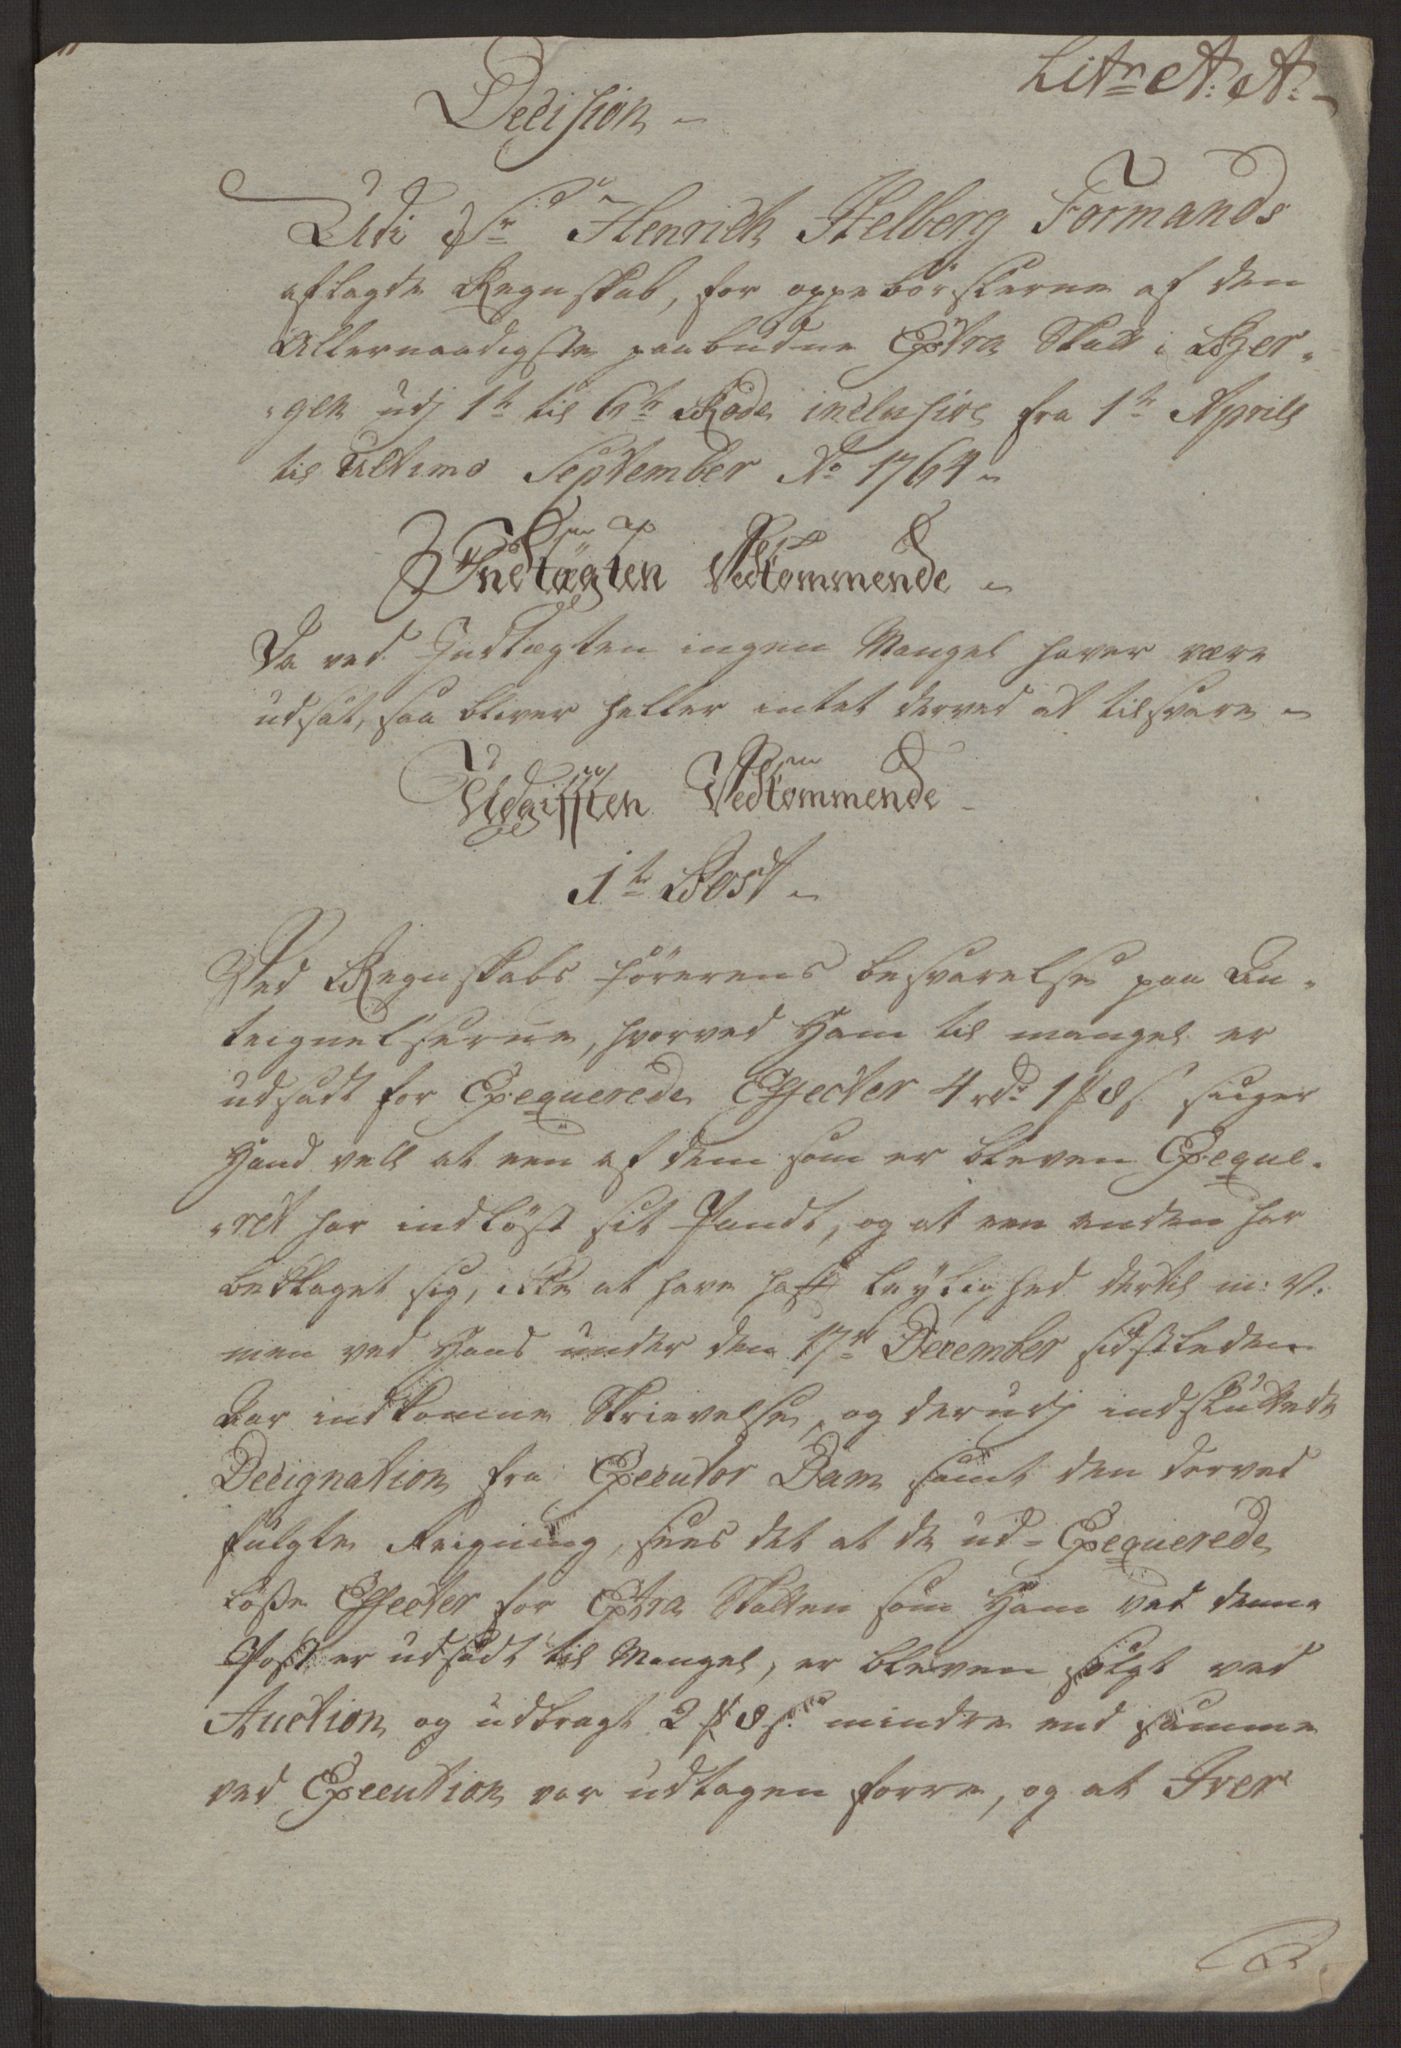 Litr A: A:
Decision
Udi Sr Henrich Helberg Formands
aflagde Regnskab, for oppebørslerne af den
Allernaadigste paabudne Extra Skatt i Ber-
gen udj 1te til 6te Rode inclusive fra 1te Aprill
til ultimo September Ao 1764
Indtægten Vedkommende
Da ved Indtægten ingen Mangel haver være
udsat, saa bliver heller intet derved at tilsvare
Udgifften Vedkommende
1te Post
Ved Regnskabs førerens besvarelse paa An-
teignelserne, hvorved Ham til mangel er
udsadt for Exequerede Effecter 4 rd 1 ß siger
Hand vell at een af dem som er bleven Exeque-
ret har indløst sit Pandt, og at een anden har
beklaget sig, icke at have haft leylighed dertil m: v.
men ved Hans under den 17de December sidstleden
har indkomne Skrivelse, og derudj indsluttede
Designation fra Executor Dam samt den derved
fulgte Reigning, sees det at de ud-Exequerede
løse Effecter for Extra Skatten som Ham ved denne
Post er udsadt til Mangel, er bleven solgt ved
Auction og udbragt 2 ß mindre end samme
ved Execution var udtagen forre, og at Iver